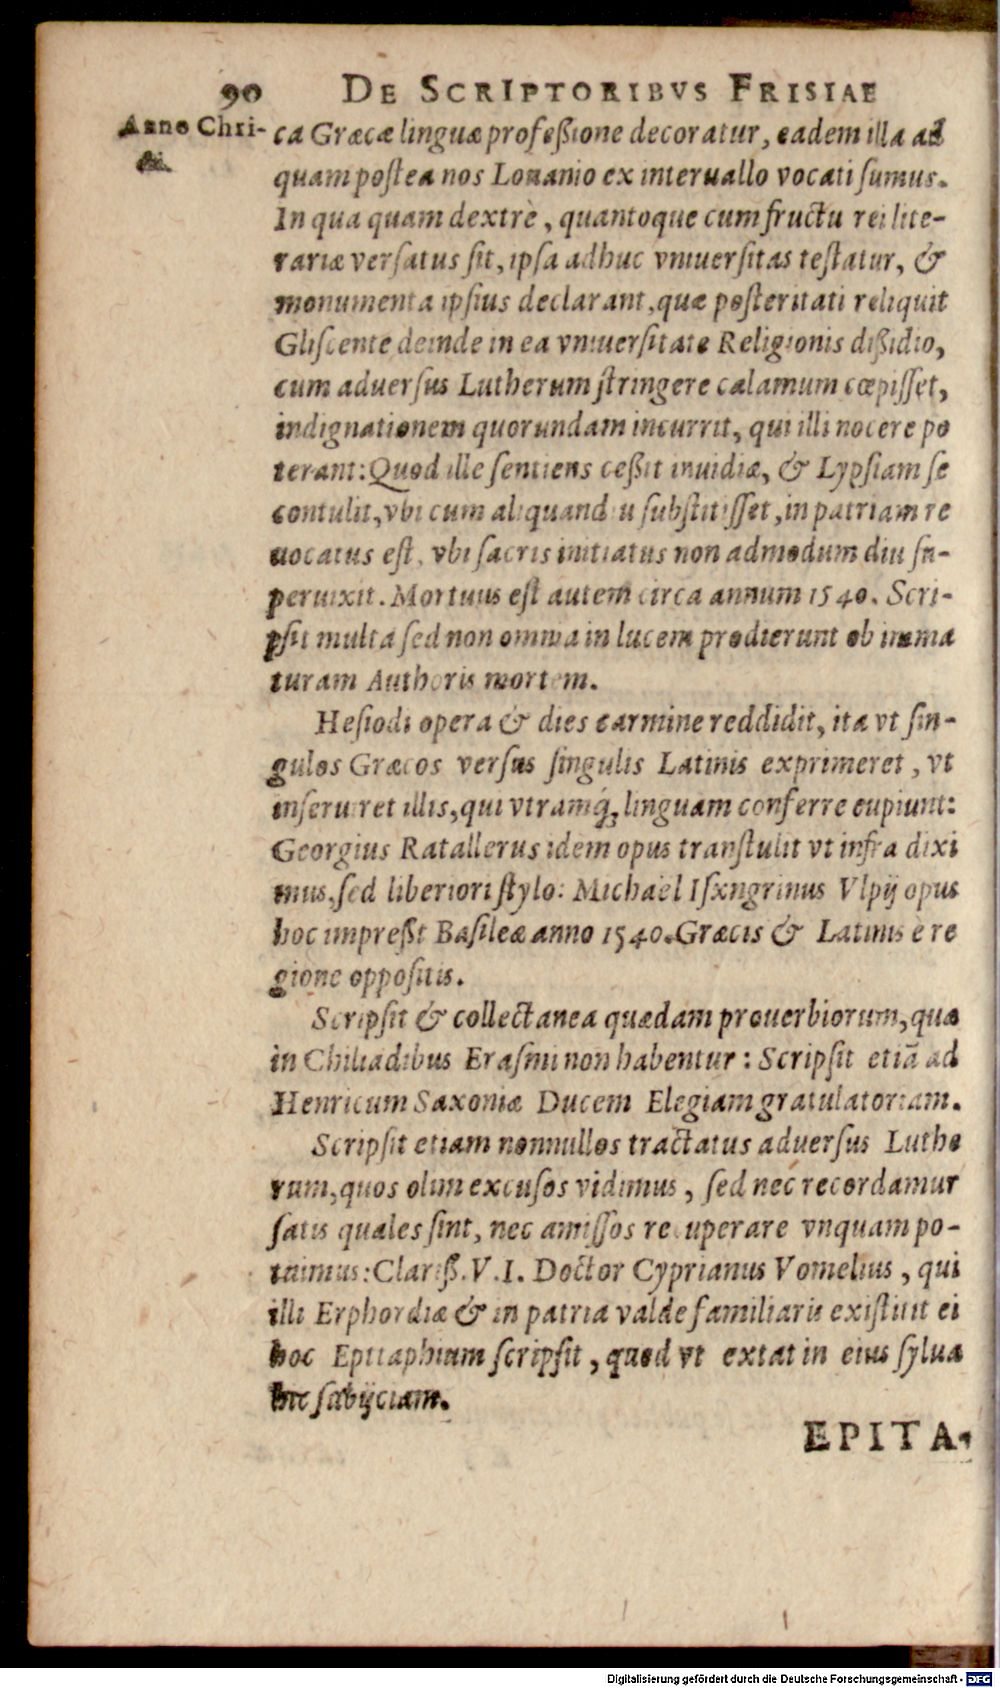 90 DE SCRIPTORIBVS FRISIAE
Anno Chri-
sti.
ca Græcæ linguæ profeßione decoratur, eadem illa ad
quam postea nos Louanio ex interuallo vocati sumus.
In qua quam dextrè, quantoque cum fructu rei lite-
rariæ versatus sit, ipsa adhuc vniuersitas testatur, &
monumenta ipsius declarant, quæ posteritati reliquit
Gliscente deinde in ea vniuersitate Religionis dißidio,
cum aduersus Lutherum stringere calamum cœpisset,
indignationem quorundam incurrit, qui illi nocere po
terant: Quod ille sentiens ceßit inuidiæ, & Lypsiam se
contulit, vbi cum aliquandiu substitisset, in patriam re
uocatus est, vbi sacris initiatus non admodum diu su-
peruixit. Mortuus est autem circa annum 1540. Scri-
psit multa sed non omnia in lucem prodierunt ob imma
turam Authoris mortem.
Hesiodi opera & dies carmine reddidit, ita vt sin-
gulos Græcos versus singulis Latinis exprimeret, vt
inseruiret illis, qui vtramq́; linguam conferre cupiunt:
Georgius Ratallerus idem opus transtulit vt infra dixi
mus, sed liberiori stylo: Michaël Isxngrinus Vlpij opus
hoc impreßit Basileæ anno 1540. Græcis & Latinis è re
gione oppositis.
Scripsit & collectanea quædam prouerbiorum, quæ
in Chiliadibus Erasmi non habentur: Scripsit etiã ad
Henricum Saxoniæ Ducem Elegiam gratulatoriam.
Scripsit etiam nonnullos tractatus aduersus Luthe
rum, quos olim excusos vidimus, sed nec recordamur
satis quales sint, nec amissos recuperare vnquam po-
tuimus: Clariß. V. I. Doctor Cyprianus Vomelius, qui
illi Erphordiæ & in patria valde familiaris existitit ei
hoc Epitaphium scripsit, quod vt extat in eius sylua
hic subijciam.
EPITA-
Digitalisierung gefördert durch die Deutsche Forschungsgemeinschaft - DFG